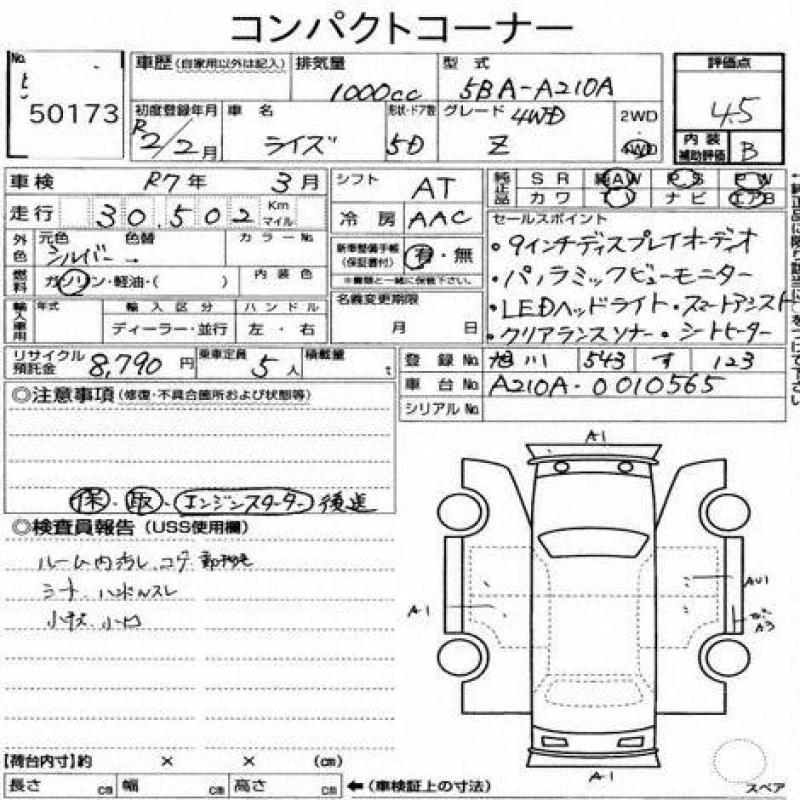 コンパクトコーナー
No.
50173
車歴 (自家用以外は記入)
排気量 1000cc
型式 5BA-A210A
評価点 4.5
初度登録年月 R2/2月
車名 ライズ
形状・ドア数 5D
グレード 4WD Z
2WD
4WD
内装補助評価 B
車検 R7年 3月
シフト AT
純正品 SR 純AW PS PW
カワ ナビ エアB
走行 30,502 Km マイル
冷房 AAC
セールスポイント
・9インチディスプレイオーディオ
・パノラミックビューモニター
・LEDヘッドライト・スマートアシスト
・クリアランスソナー・シートヒーター
外色 元色 シルバー 色替 カラーNo.
新車整備手帳(保証書付) 有・無
※書類と一緒に保管下さい。
燃料 ガソリン・軽油・( ) 内装色
名義変更期限
月 日
輸入車用 年式 輸入区分 ハンドル
ディーラー・並行 左・右
リサイクル預託金 8,790円 乗車定員 5人 積載量 t
登録No. 旭川 543 す 123
車台No. A210A-0010565
シリアルNo.
◎注意事項 (修復・不具合箇所および状態等)
保・取・エンジンスターター 後送
◎検査員報告 (USS使用欄)
ルーム内汚レ コゲ
シート ハンドルスレ
小キズ 小凹
A1
A1
AU1
A1
スペア
【荷台内寸】約 × × (cm)
長さ cm 幅 cm 高さ cm ←(車検証上の寸法)